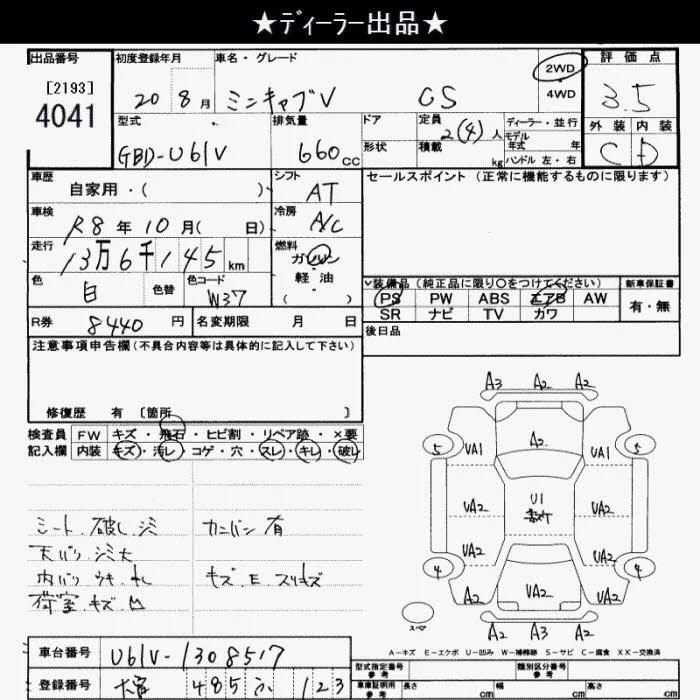 ★ディーラー出品★
出品番号 初度登録年月 車名・グレード 2WD 評価点
[2193] 4041 20 8月 ミニキャブV CS 4WD 3.5
型式 排気量 ドア 定員 2(4)人 ディーラー・並行 外装 内装
モデル
年式 年
GBD-U61V 660cc 形状 積載 kg ハンドル 左・右 C D
車歴 自家用・( ) シフト AT セールスポイント(正常に機能するものに限ります)
車検 R8年10月( 日) 冷房 A/C
走行 13万6千145km 燃料 ガソリン
軽油
( )
色 白 色替 色コード W37 装備品(純正品に限り○をつけてください) 新車保証書
PS PW ABS エアB AW 有・無
SR ナビ TV カワ
R券 8440円 名変期限 月 日 後日品
注意事項申告欄(不具合内容等は具体的に記入して下さい)
修復歴 有 〔箇所 〕
検査員 FW キズ・飛石・ヒビ割・リペア跡・×要
記入欄 内装 キズ・汚レ・コゲ・穴・スレ・キレ・破レ
シート 破レ シミ カンバン 有
天バリ シミ大
内バリ ウキ キズ・E・スリキズ
荷室 キズ 凹
A3 A2 A2
A2
5 UA1 UA1 5
UA2 U1 VA2
UA2 UA2
4 VA2 4
UA2 UA2
A2 A3 A2
スペア
A-キズ E-エクボ U-凹み W-補修跡 S-サビ C-腐食 XX-交換済
車台番号 U61V-1308517
型式指定番号 参考 類別区分番号 参考
登録番号 485 123
車庫証明用 参考 長さ cm 幅 cm 高さ cm